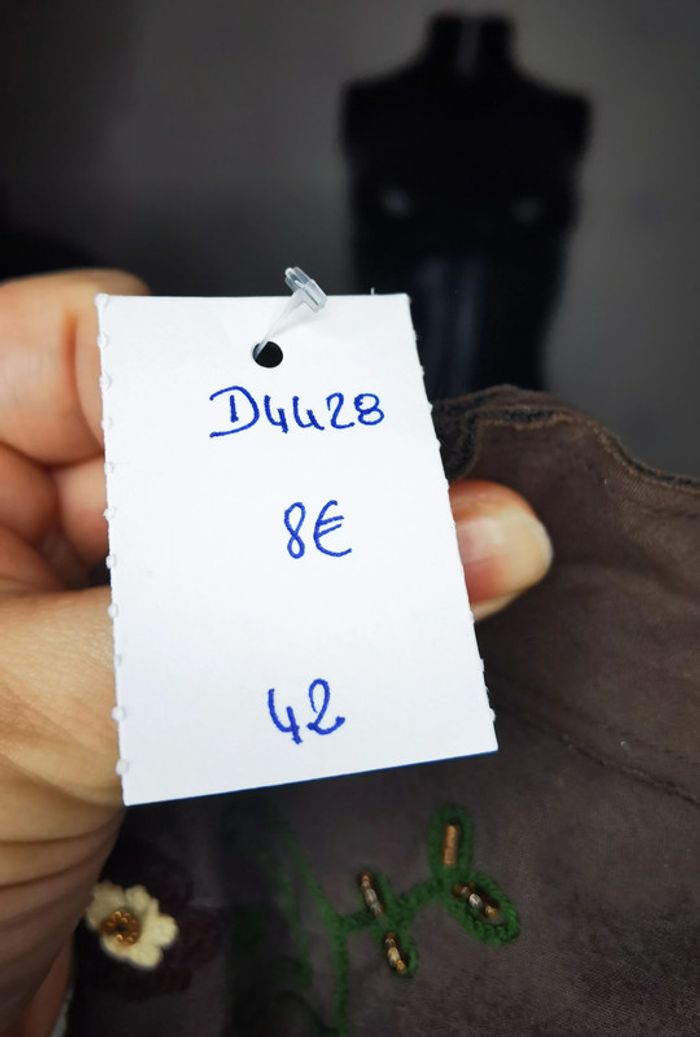 D4428
8€
42